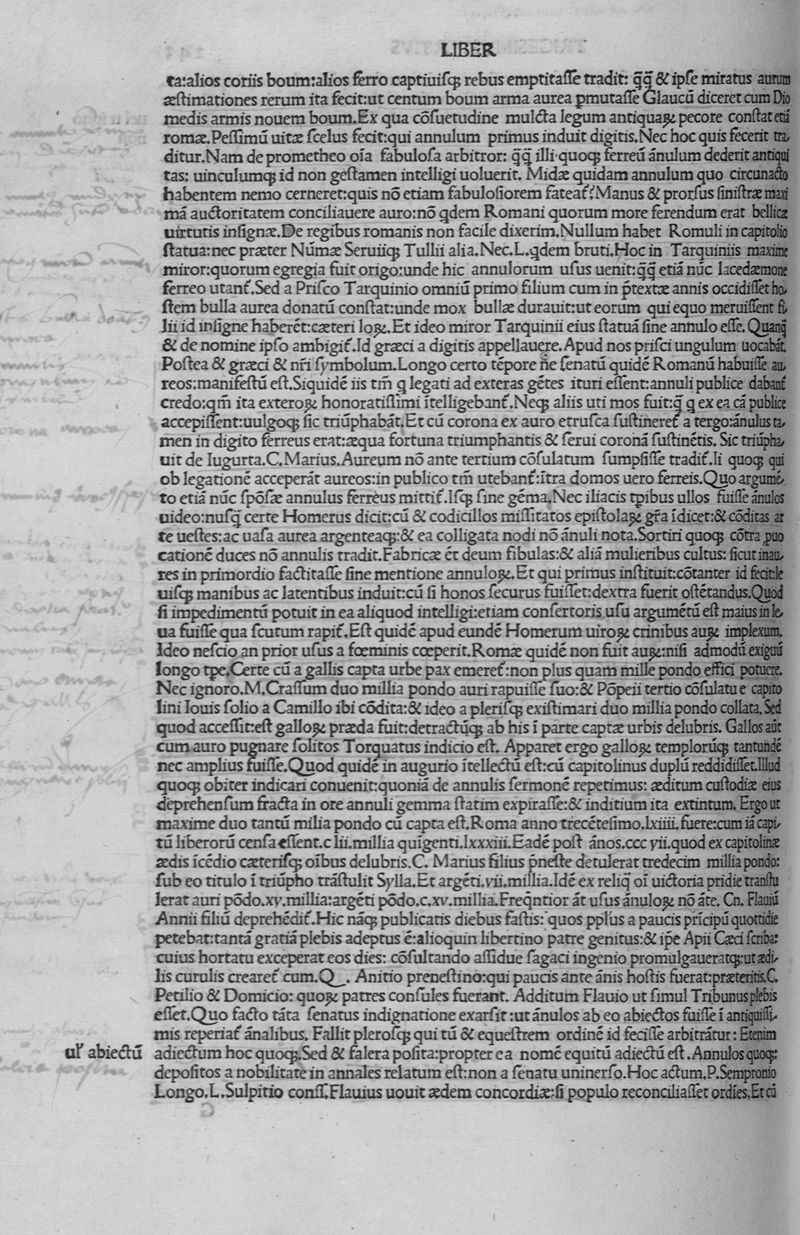 LIBER
ta:alios coriis boum:alios ferro captiuiſqꝫ rebus emptitaſſe tradit: q̄q̄ & ipſe miratus aurum
æſtimationes rerum ita fecit:ut centum boum arma aurea ꝑmutaſſe Glaucū diceret cum Dio
medis armis nouem boum.Ex qua cōſuetudine mulcta legum antiquaꝝ pecore conſtat etiā
romæ.Peſſimū uitæ ſcelus fecit:qui annulum primus induit digitis.Nec hoc quis fecerit tra,
ditur.Nam de prometheo oīa fabuloſa arbitror: q̄q̄ illi quoqꝫ ferreū ānulum dederit antiqui
tas: uinculumqꝫ id non geſtamen intelligi uoluerit. Midæ quidam annulum quo circunacto
habentem nemo cerneret:quis nō etiam fabuloſiorem fateat̄?Manus & prorſus ſiniſtræ maxi
mā auctoritatem conciliauere auro:nō qdem Romani quorum more ferendum erat bellicæ
uirtutis inſignæ.De regibus romanis non facile dixerim.Nullum habet Romuli in capitolio
ſtatua:nec præter Numæ Seruiiqꝫ Tullii alia.Nec.L.qdem bruti.Hoc in Tarquiniis maxime
miror:quorum egregia fuit origo:unde hic annulorum uſus uenit:q̄q̄ etiā nūc lacedæmone
ferreo utant̄.Sed a Priſco Tarquinio omniū primo filium cum in p̄textæ annis occidiſſet ho,
ſtem bulla aurea donatū conſtat:unde mox bullæ durauit:ut eorum qui equo meruiſſent fi,
lii id inſigne haberēt:cæteri loꝝ.Et ideo miror Tarquinii eius ſtatuā ſine annulo eſſe.Quanq̄
& de nomine ipſo ambigit̄.Id græci a digitis appellauere.Apud nos priſci ungulum uocabāt.
Poſtea & græci & nr̄i ſymbolum.Longo certo tēpore ne ſenatū quidē Romanū habuiſſe au,
reos:manifeſtū eſt.Siquidē iis tm̄ q legati ad exteras gētes ituri eſſent:annuli publice dabant̄
credo:qm̄ ita exteroꝝ honoratiſſimi ītelligebant̄.Neqꝫ aliis uti mos fuit:q̄ q ex ea cā publice
accepiſſent:uulgoqꝫ ſic triūphabāt.Et cū corona ex auro etruſca ſuſtineret̄ a tergo:ānulus ta,
men in digito ferreus erat:æqua fortuna triumphantis & ſerui coronā ſuſtinētis. Sic triūpha,
uit de Iugurta.C.Marius.Aureum nō ante tertium cōſulatum ſumpſiſſe tradit̄.Ii quoqꝫ qui
ob legationē acceperāt aureos:in publico tm̄ utebant̄:ītra domos uero ferreis.Quo argumē,
to etiā nūc ſpōſæ annulus ferreus mittit̄.Iſqꝫ ſine gēma.Nec iliacis tpibus ullos fuiſſe ānulos
uideo:nuſq̄ certe Homerus dicit:cū & codicillos miſſitatos epiſtolaꝝ gr̄a īdicet:& cōditas ar
te ueſtes:ac uaſa aurea argenteaqꝫ:& ea colligata nodi nō ānuli nota.Sortiri quoqꝫ cōtra ꝓuo
cationē duces nō annulis tradit.Fabricæ ēt deum fibulas:& aliā mulieribus cultus: ſicut inau,
res in primordio factitaſſe ſine mentione annuloꝝ.Et qui primus inſtituit:cōtanter id fecit:le
uiſqꝫ manibus ac latentibus induit:cū ſi honos ſecurus fuiſſet:dextra fuerit oſtētandus.Quod
ſi impedimentū potuit in ea aliquod intelligi:etiam conſertoris uſu argumētū eſt maius in le,
ua fuiſſe qua ſcutum rapit̄.Eſt quidē apud eundē Homerum uiroꝝ crinibus auꝝ implexum.
Ideo neſcio an prior uſus a fœminis cœperit.Romæ quidē non fuit auꝝ:niſi admodū exiguū
longo tpe.Certe cū a gallis capta urbe pax emeret̄:non plus quam mille pondo effici potuere.
Nec ignoro.M.Craſſum duo millia pondo auri rapuiſſe ſuo:& Pōpeii tertio cōſulatu e capito
lini Iouis ſolio a Camillo ibi cōdita:& ideo a pleriſqꝫ exiſtimari duo millia pondo collata.Sed
quod acceſſit:eſt galloꝝ præda fuit:detractūqꝫ ab his ī parte captæ urbis delubris. Gallos aūt
cum auro pugnare ſolitos Torquatus indicio eſt. Apparet ergo galloꝝ templorūqꝫ tantundē
nec amplius fuiſſe.Quod quidē in augurio ītellectū eſt:cū capitolinus duplū reddidiſſet.Illud
quoqꝫ obiter indicari conuenit:quoniā de annulis ſermonē repetimus: æditum cuſtodiæ eius
deprehenſum fracta in ore annuli gemma ſtatim expiraſſe:& inditium ita extintum. Ergo ut
maxime duo tantū milia pondo cū capta eſt.Roma anno trecēteſimo.lxiiii.fuere:cum iā capi,
tū liberorū cenſa eſſent.c lii.millia quīgenti.lxxxiii.Eadē poſt ānos.ccc vii.quod ex capitolinæ
ædis īcēdio cæteriſqꝫ oībus delubris.C. Marius filius p̄neſte detulerat tredecim millia pondo:
ſub eo titulo ī triūpho trāſtulit Sylla.Et argēti.vii.millia.Idē ex reliq̄ oī uictoria pridie tranſtu
lerat auri pōdo.xv.millia:argēti pōdo.c.xv.millia.Freqntior āt uſus ānuloꝝ nō āte. Cn. Flauiū
Annii filiū deprehēdit̄.Hic nāqꝫ publicatis diebus faſtis: quos pplus a paucis prīcipū quottidie
petebat:tantā gratiā plebis adeptus ē:alioquin libertino patre genitus:& ipe Apii Cæci ſcriba:
cuius hortatu exceperat eos dies: cōſultando aſſidue ſagaci ingenio promulgaueratqꝫ:ut ædi,
lis curulis crearet̄ cum.Q . Anitio preneſtino:qui paucis ante ānis hoſtis fuerat:præteritis.C.
Petilio & Domicio: quoꝝ patres conſules fuerant. Additum Flauio ut ſimul Tribunus plebis
eſſet.Quo facto tāta ſenatus indignatione exarſit :ut ānulos ab eo abiectos fuiſſe ī antiquiſſi,
mis reperiat̄ ānalibus. Fallit pleroſqꝫ qui tū & equeſtrem ordinē id feciſſe arbitrātur: Etenim
ur̄ abiectū
adiectum hoc quoqꝫ.Sed & falera poſita:propter ea nomē equitū adiectū eſt .Annulos quoqꝫ:
depoſitos a nobilitate in annales relatum eſt:non a ſenatu uninerſo.Hoc actum.P.Sempronio
Longo.L.Sulpitio conſſ.Flauius uouit ædem concordiæ:ſi populo reconciliaſſet ordīes.Et cū